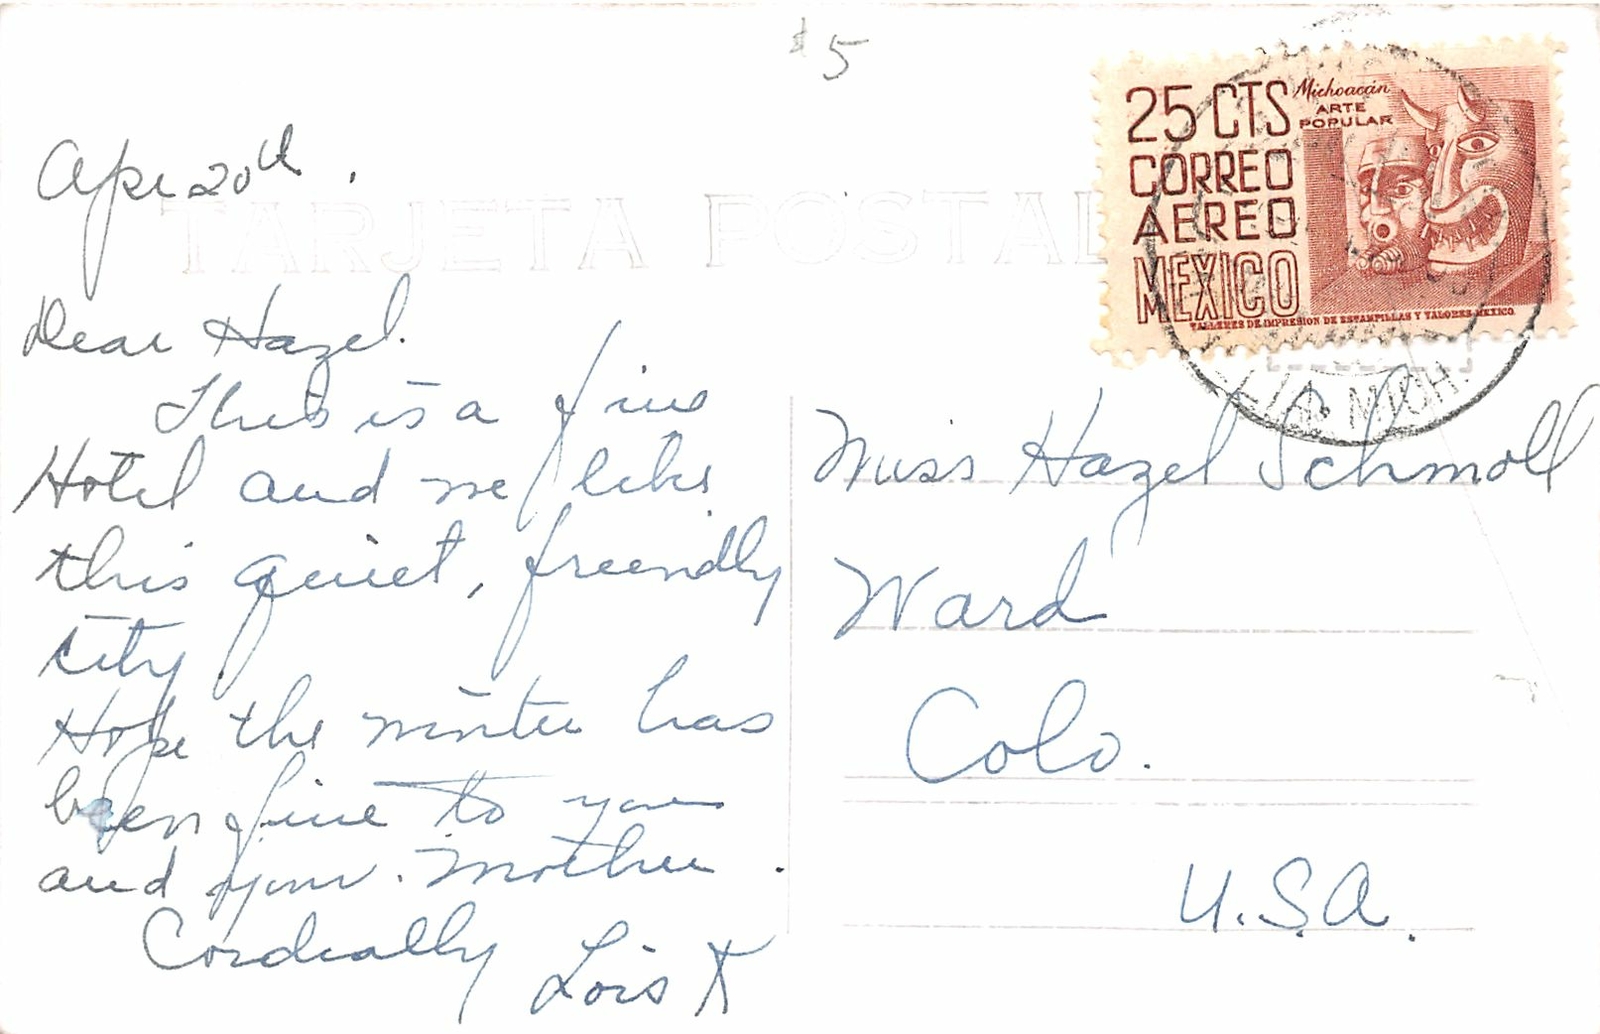 $5
Apr 20th.
TARJETA POSTAL
25 CTS
CORREO
AEREO
MEXICO
Michoacán
ARTE
POPULAR
TALLERES DE IMPRESION DE ESTAMPILLAS Y VALORES-MEXICO
LIA. MICH.
Dear Hazel.
This is a fine
Hotel and we like
this quiet, friendly
city.
Hope the winter has
been fine to you
and your mother.
Cordially
Lois K
Miss Hazel Schmoll
Ward
Colo.
U.S.A.